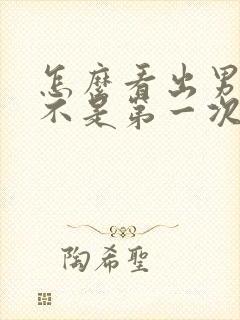 怎麼看出男
不是第一次
陶希聖